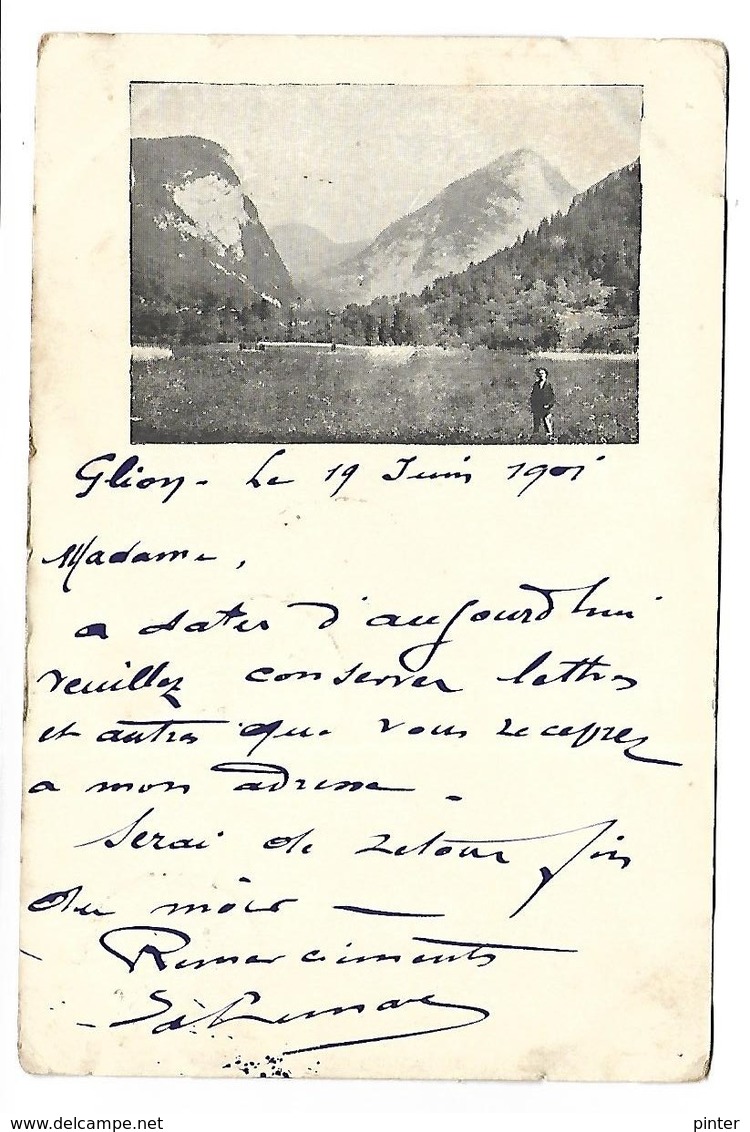 Glion - Le 19 Juin 1901
Madame,
a dater d'aujourd'hui
veuillez conserver lettres
et autres que vous recevrez
a mon adresse -
Serai de retour fin
du mois —
Remerciements
www.delcampe.net
pinter